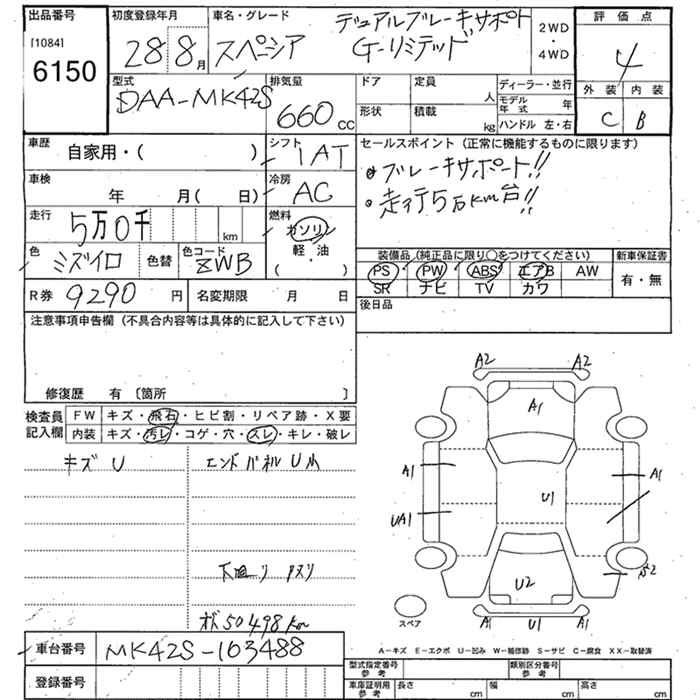 出品番号
[1084]
6150
初度登録年月
28年8月
車名・グレード
スペーシア
デュアルブレーキサポート
G-リミテッド
2WD
・
4WD
評価点
4
外装 内装
C B
型式
DAA-MK42S
排気量
660cc
ドア
定員
人
形状
積載
kg
ディーラー・並行
モデル年式 年
ハンドル 左・右
車歴
自家用・( )
シフト
IAT
セールスポイント(正常に機能するものに限ります)
ブレーキサポート!!
走行5万km台!!
車検
年 月( 日)
冷房
AC
走行
5万0千 km
燃料
ガソリン
軽・油
( )
色
ミズイロ
色替
色コード
ZWB
装備品(純正品に限り○をつけてください)
PS PW ABS エアB AW
SR ナビ TV カワ
新車保証書
有・無
R券
9290円
名変期限 月 日
後日品
注意事項申告欄(不具合内容等は具体的に記入して下さい)
修復歴 有 〔箇所 〕
検査員記入欄
FW キズ・飛石・ヒビ割・リペア跡・X要
内装 キズ・汚レ・コゲ・穴・スレ・キレ・破レ
キズ U
エンドパネル UM
下回り
50498km
A2 A2
A1
A1 A1
U1
UA1
U2
S2
A1 U1 A1
スペア
A-キズ E-エクボ U-凹み W-補修跡 S-サビ C-腐食 XX-取替済
車台番号
MK42S-103488
登録番号
型式指定番号 参考
類別区分番号 参考
車庫証明用 参考
長さ cm
幅 cm
高さ cm